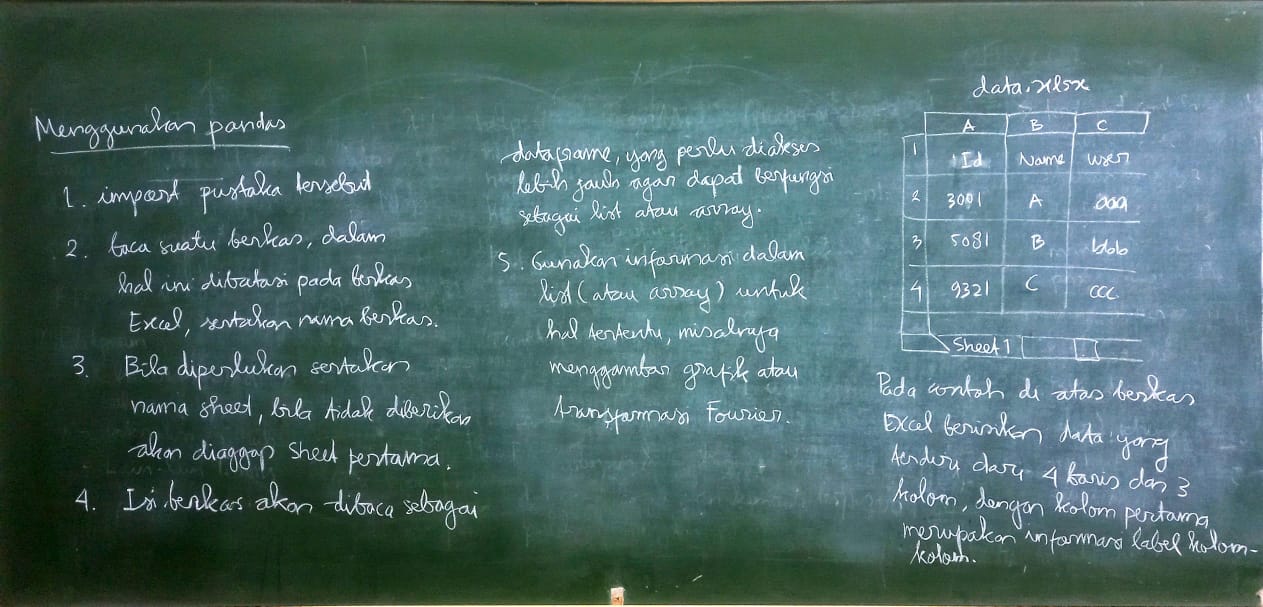 Menggunakan pandas
1. import pustaka tersebut
2. baca suatu berkas, dalam
hal ini dibatasi pada berkas
Excel, sertakan nama berkas.
3. Bila diperlukan sertakan
nama sheet, bila tidak diberikan
akan diaggap sheet pertama.
4. Isi berkas akan dibaca sebagai
dataframe, yang perlu diakses
lebih jauh agar dapat berfungsi
sebagai list atau array.
5. Gunakan informasi dalam
list (atau array) untuk
hal tertentu, misalnya
menggambar grafik atau
transformasi Fourier.
data.xlsx
A B C
1 Id Name user
2 3001 A aaa
3 5081 B bbb
4 9321 C ccc
Sheet 1
Pada contoh di atas berkas
Excel berisikan data yang
terdiri dari 4 baris dan 3
kolom, dengan kolom pertama
merupakan informasi label kolom-
kolom.